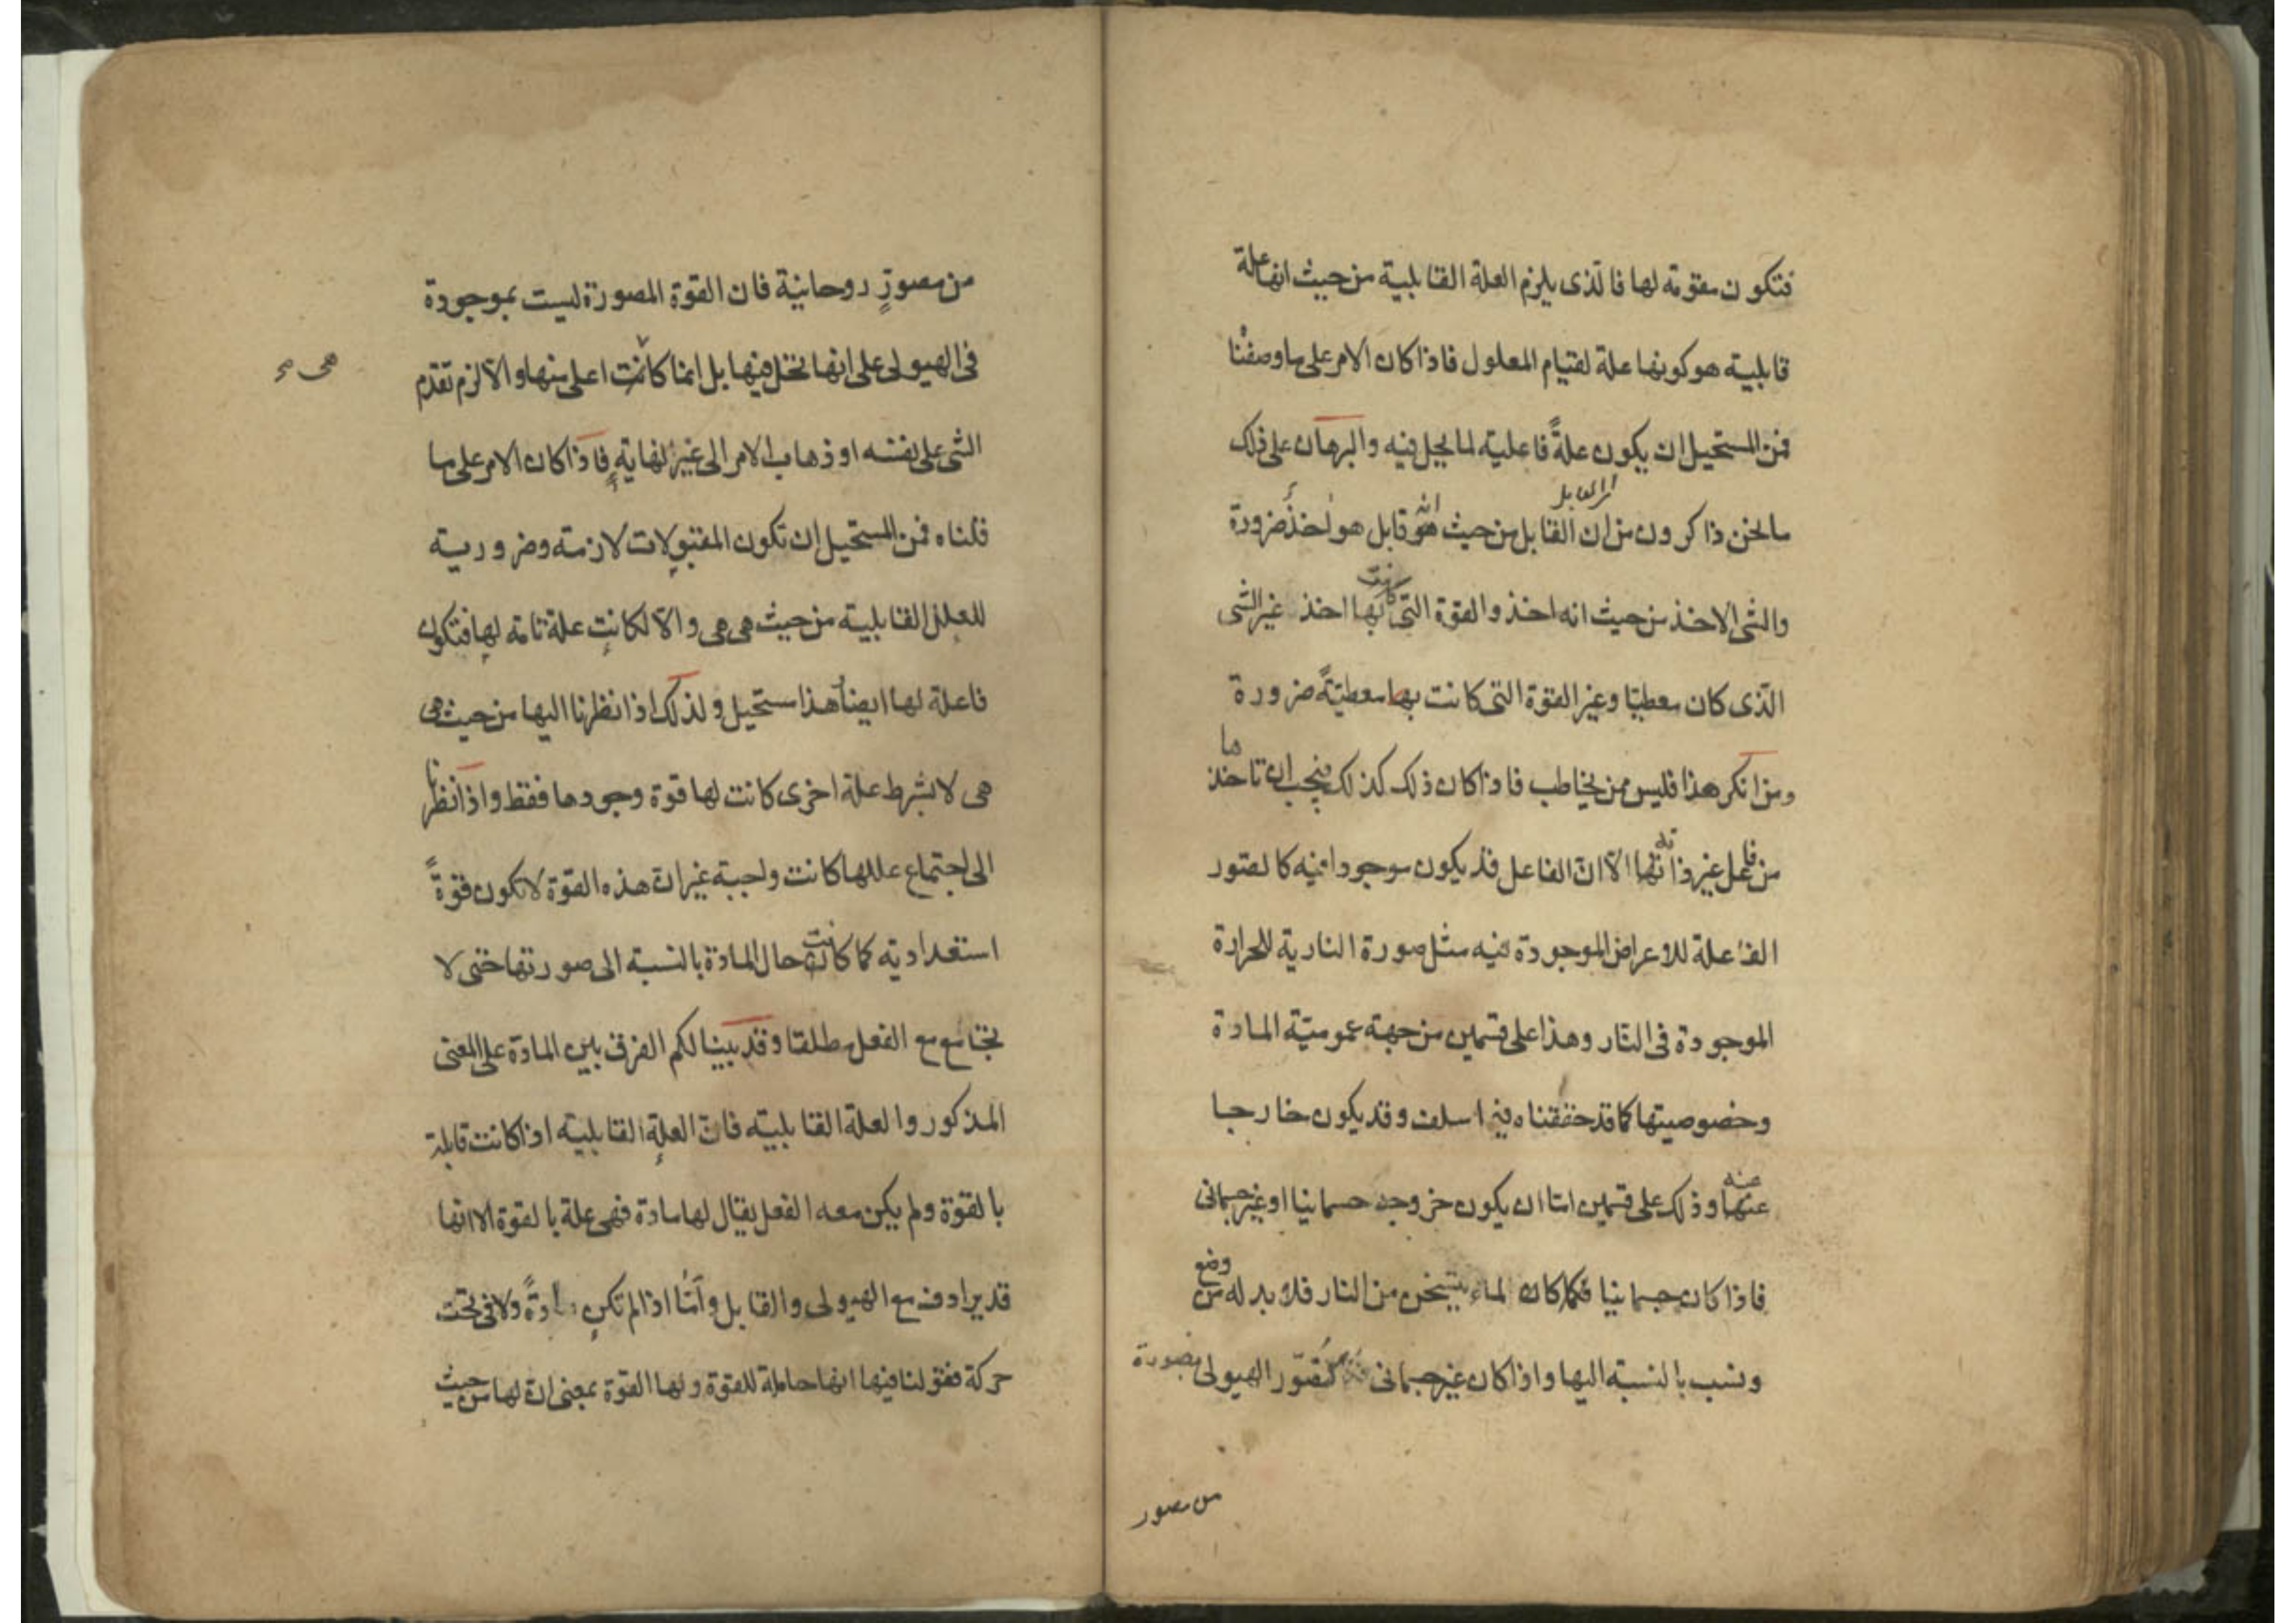 فتكون مقومة لها فالّذى يلزم العلة القابلية من حيث انها علة
قابلية هو كونها علة لقيام المعلول فاذا كان الامر على ما وصفنا
فمن المستحيل ان يكون علةً فاعلية لما يحل فيه والبرهان على ذلك
ما نحن ذاكرون من ان القابل من حيث هو قابل هو اخذٌ ضرورة
والشى الاخذ من حيث انه اخذ والقوة التى كانت بها اخذ غير الشى
الّذى كان معطيّا وغير القوة التى كانت بها معطيّةً ضرورة
ومن انكر هذا فليس ممن يخاطب فاذا كان ذلك كذلك فيجب ان تاخذها
من فاعل غير ذاتها الاّ انّ الفاعل قد يكون موجودا فيه كالصور
الفاعلة للاعراض الموجودة فيه مثل صورة النارية للحرارة
الموجودة فى النّار وهذا على قسمين من جهة عموميّة المادة
وخصوصيتها كما قد حققناه فيما سلف وقد يكون خارجا
عنها عنه وذلك على قسمين امّا ان يكون خروجه جسمانيا او غير جسمانى
فاذا كان جسمانيا فكما كان الماء يتسخن من النار فلا بد له من وضع
ونسب بالنسبة اليها واذا كان غير جسمانى كتصوّر الهيولى بصورة
من مصور
من مصورٍ روحانية فان القوة المصورة ليست بموجودة
فى الهيولى على انها تحل فيها بل انما كانت اعلى منها والاّ لزم تقدم
هى
الشى على نفسه او ذهاب الامر الى غير نهايةٍ فاذا كان الامر على ما
قلناه فمن المستحيل ان تكون المقبولات لازمة وضرورية
للعلل القابلية من حيث هى هى والاّ لكانت علة تامة لها فتكون
فاعلة لها ايضاً هذا مستحيل ولذلك اذا نظرنا اليها من حيث هى
هى لا بشرط علة اخرى كانت لها قوة وجودها فقط واذا نظرنا
الى اجتماع عللها كانت واجبة غير انّ هذه القوّة لا تكون قوّةً
استعدادية كما كانت حال المادة بالنسبة الى صورتها حتى لا
تجامع مع الفعل مطلقا وقد بينا لكم الفرق بين المادة على المعنى
المذكور والعلة القابلية فانّ العلة القابلية اذا كانت قابلة
بالقوّة ولم يكن معه الفعل يقال لها مادة فهى علة بالقوة الا انها
قد يرادف مع الهيولى والقابل وامّا اذا لم تكن مادةً ولا فى تحت
حركة فقولنا فيها انها حاملة للقوة ولها القوة بمعنى انّ لها من حيث